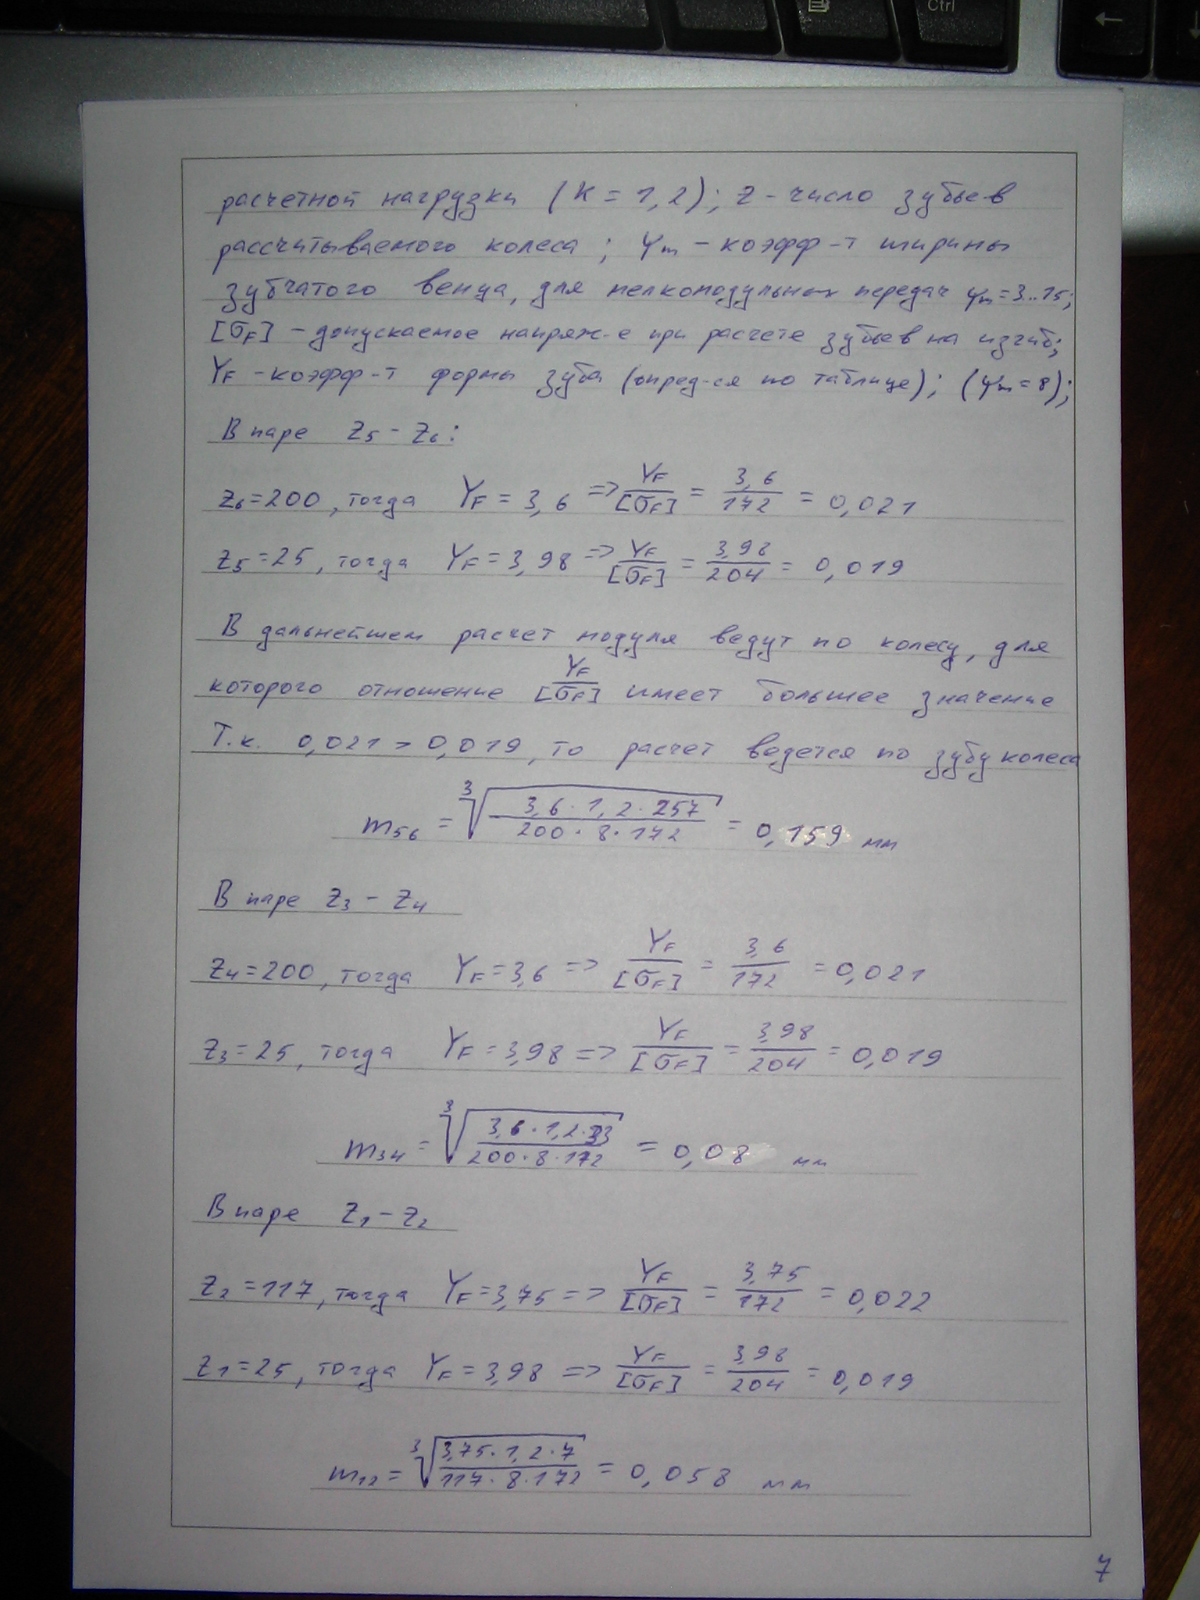 Ctrl
←
расчетной нагрузки (K = 1,2); z - число зубьев
рассчитываемого колеса; ψm - коэфф-т ширины
зубчатого венца, для мелкомодульных передач ψm=3..15;
[σF] - допускаемое напряж-е при расчете зубьев на изгиб;
YF - коэфф-т формы зуба (опред-ся по таблице); (ψm=8);
В паре Z5 - Z6:
Z6=200, тогда YF = 3,6 => YF/[σF] = 3,6/172 = 0,021
Z5=25, тогда YF = 3,98 => YF/[σF] = 3,98/204 = 0,019
В дальнейшем расчет модуля ведут по колесу, для
которого отношение YF/[σF] имеет большее значение
Т.к. 0,021 > 0,019, то расчет ведется по зубу колеса
m56 = ∛(3,6·1,2·257/200·8·172) = 0,159 мм
В паре Z3 - Z4
Z4=200, тогда YF=3,6 => YF/[σF] = 3,6/172 = 0,021
Z3=25, тогда YF=3,98 => YF/[σF] = 3,98/204 = 0,019
m34 = ∛(3,6·1,2·33/200·8·172) = 0,08 мм
В паре Z1 - Z2
Z2=117, тогда YF=3,75 => YF/[σF] = 3,75/172 = 0,022
Z1=25, тогда YF=3,98 => YF/[σF] = 3,98/204 = 0,019
m12 = ∛(3,75·1,2·7/117·8·172) = 0,058 мм
7